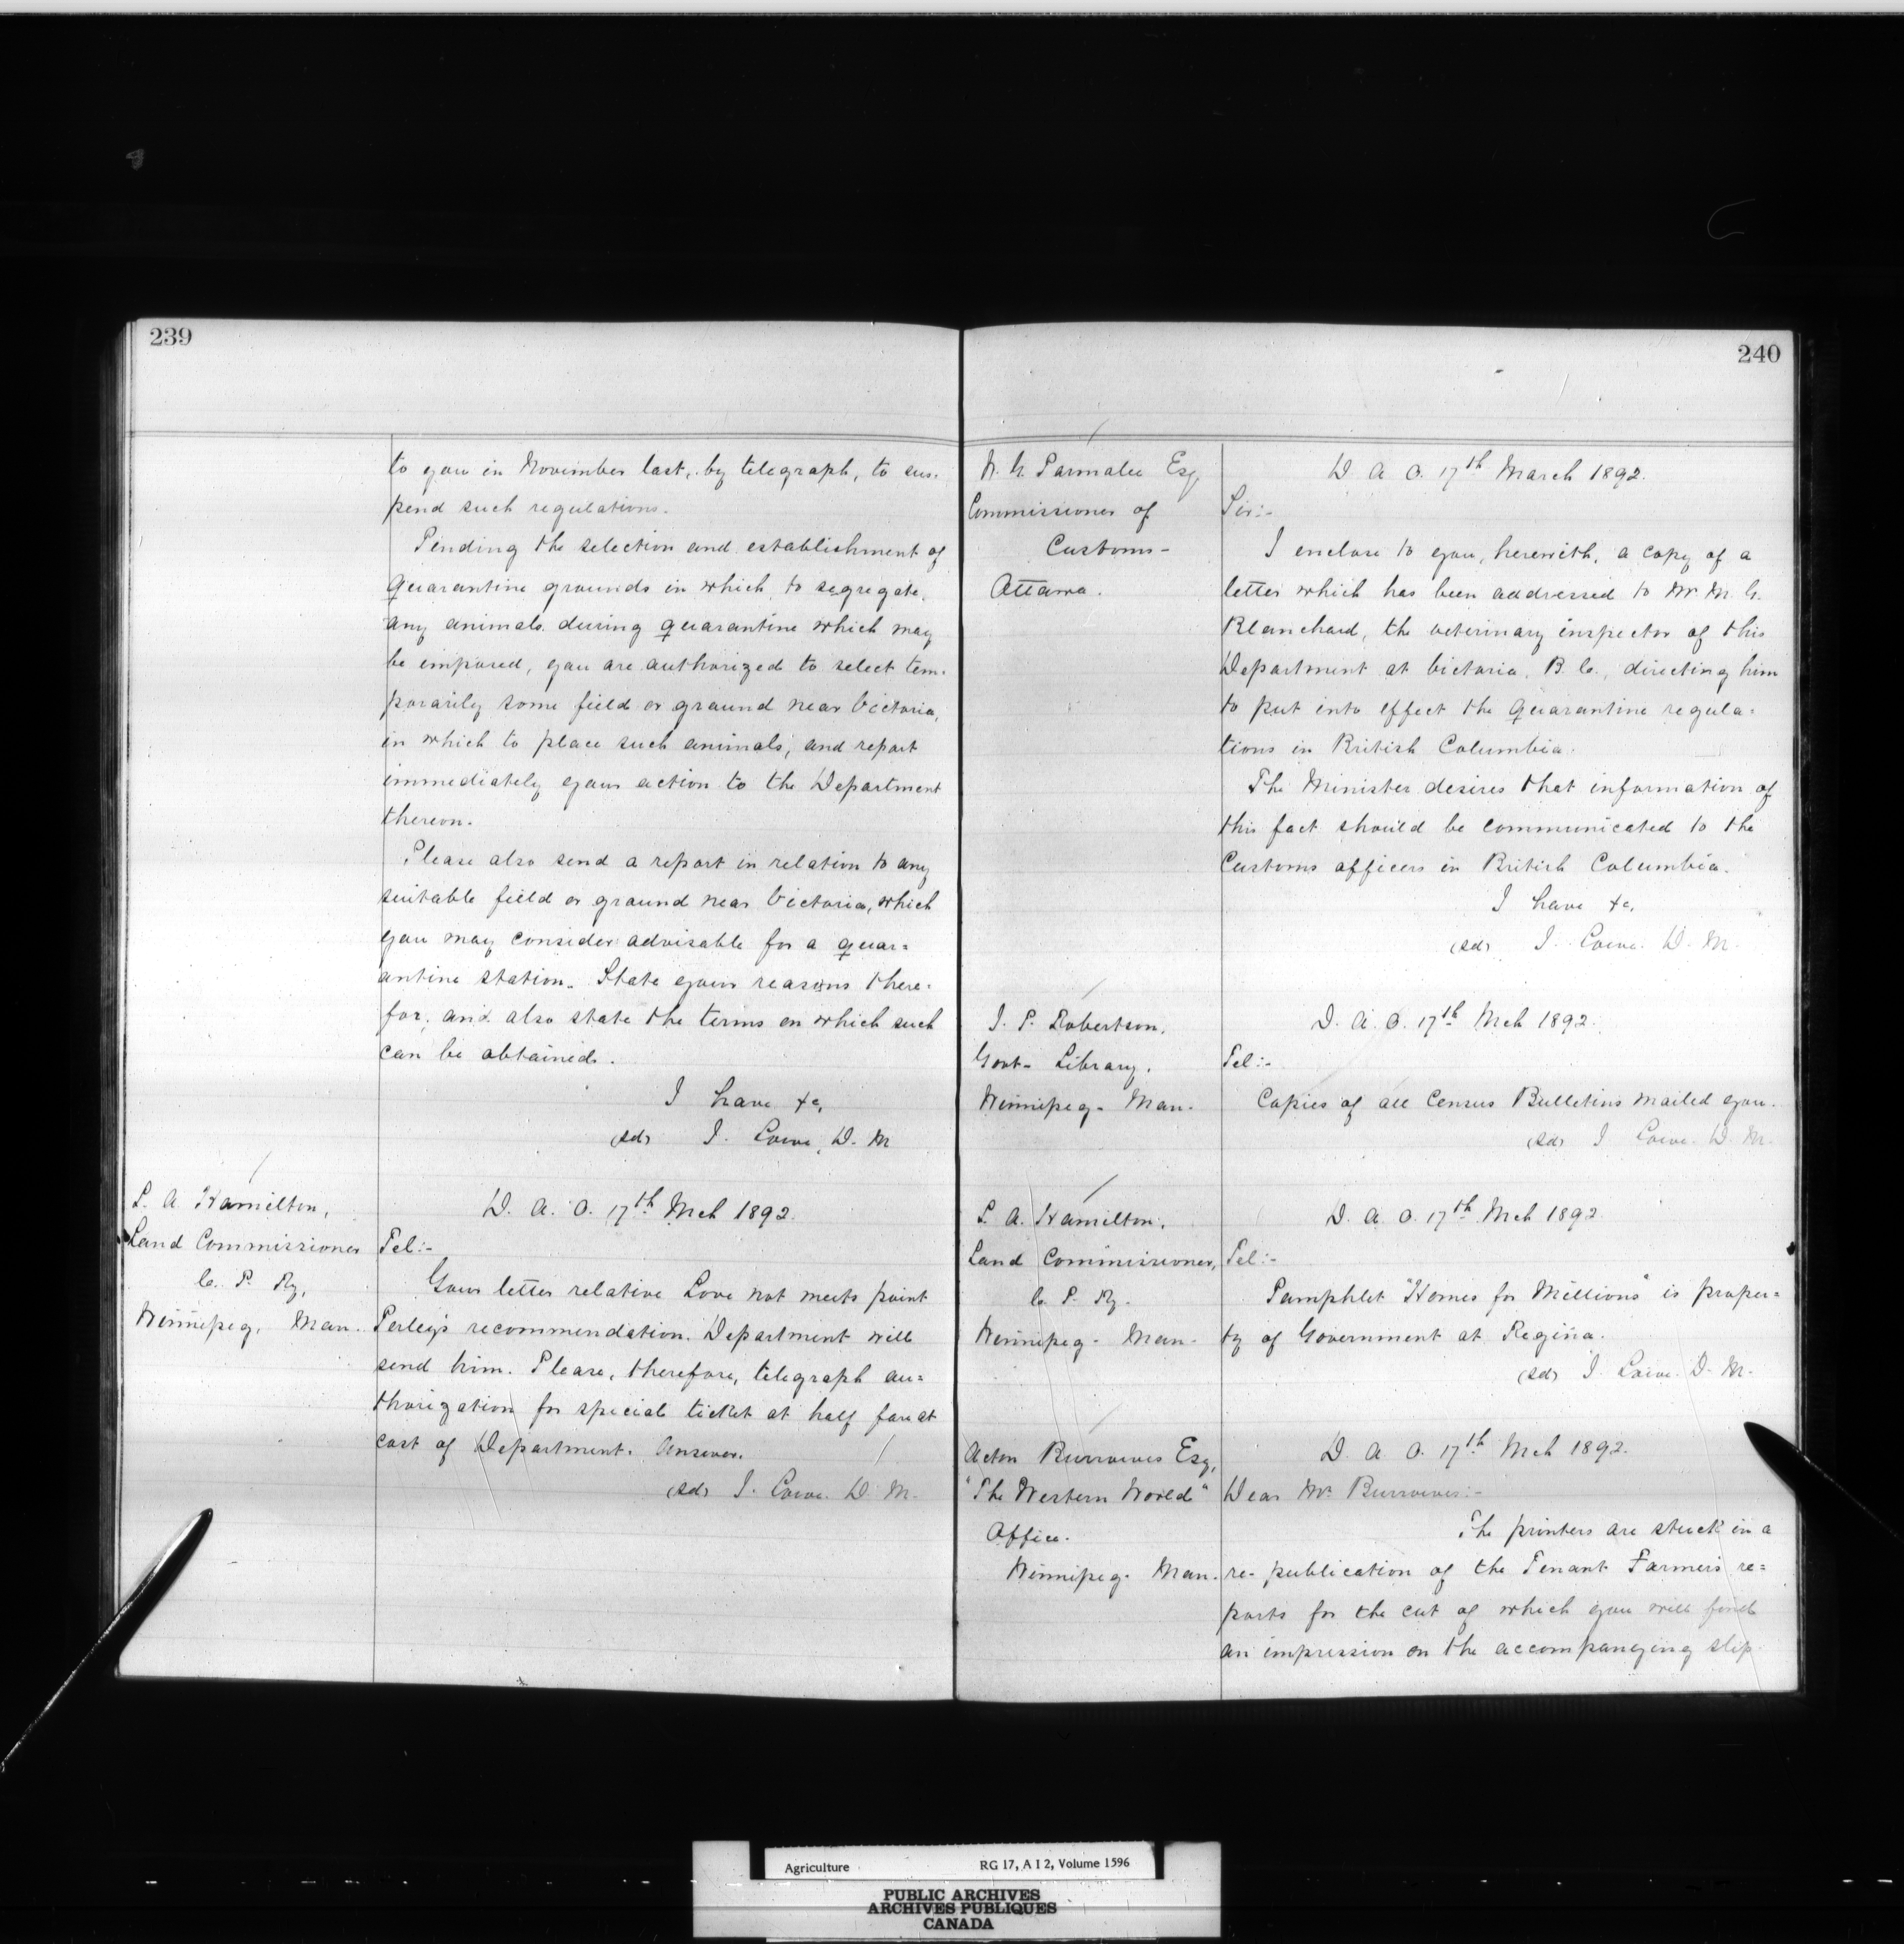 239
to you in November last, by telegraph, to sus-
pend such regulations.
Pending the selection and establishment of
quarantine grounds in which to segregate
any animals during quarantine which may
be imposed, you are authorized to select tem-
porarily some field or ground near Victoria,
in which to place such animals, and report
immediately your action to the Department
thereon.
Please also send a report in relation to any
suitable field or ground near Victoria, which
you may consider advisable for a quar=
antine station. State your reasons there=
for, and also state the terms on which such
can be obtained.
I have &c,
(sd) J. Lowe, D. M.
L. A. Hamilton,
Land Commissioner
C. P. Ry,
Winnipeg, Man.
D. A. O. 17th Mch 1892.
Tel:-
Your letter relative Love not meets point
Perley's recommendation. Department will
send him. Please, therefore, telegraph au=
thorization for special ticket at half fare at
cost of Department. Answer.
(sd) J. Lowe. D. M.
240
W. G. Parmalee Esq,
Commissioner of
Customs-
Ottawa.
D. A. O. 17th March 1892.
Sir:-
I enclose to you, herewith, a copy of a
letter which has been addressed to Mr. M. G.
Blanchard, the veterinary inspector of this
Department at Victoria, B. C., directing him
to put into effect the quarantine regula=
tions in British Columbia.
The Minister desires that information of
this fact should be communicated to the
Customs officers in British Columbia.
I have &c,
(sd) J. Lowe. D. M.
J. P. Robertson,
Govt- Library,
Winnipeg- Man-
D. A. O. 17th Mch 1892.
Tel:-
Copies of all Census Bulletins mailed you.
(sd) J. Lowe. D. M.
L. A. Hamilton,
Land Commissioner,
C. P. Ry.
Winnipeg- Man-
D. A. O. 17th Mch 1892
Tel:-
Pamphlet "Homes for Millions" is proper=
ty of Government at Regina.
(sd) J. Lowe. D. M.
Acton Burrowes Esq,
"The Western World"
Office.
Winnipeg- Man.
D. A. O. 17th Mch 1892.
Dear Mr. Burrowes:-
The printers are stuck in a
re-publication of the Tenant Farmers re=
ports for the cut of which you will find
an impression on the accompanying slip
Agriculture RG 17, A I 2, Volume 1596
PUBLIC ARCHIVES
ARCHIVES PUBLIQUES
CANADA